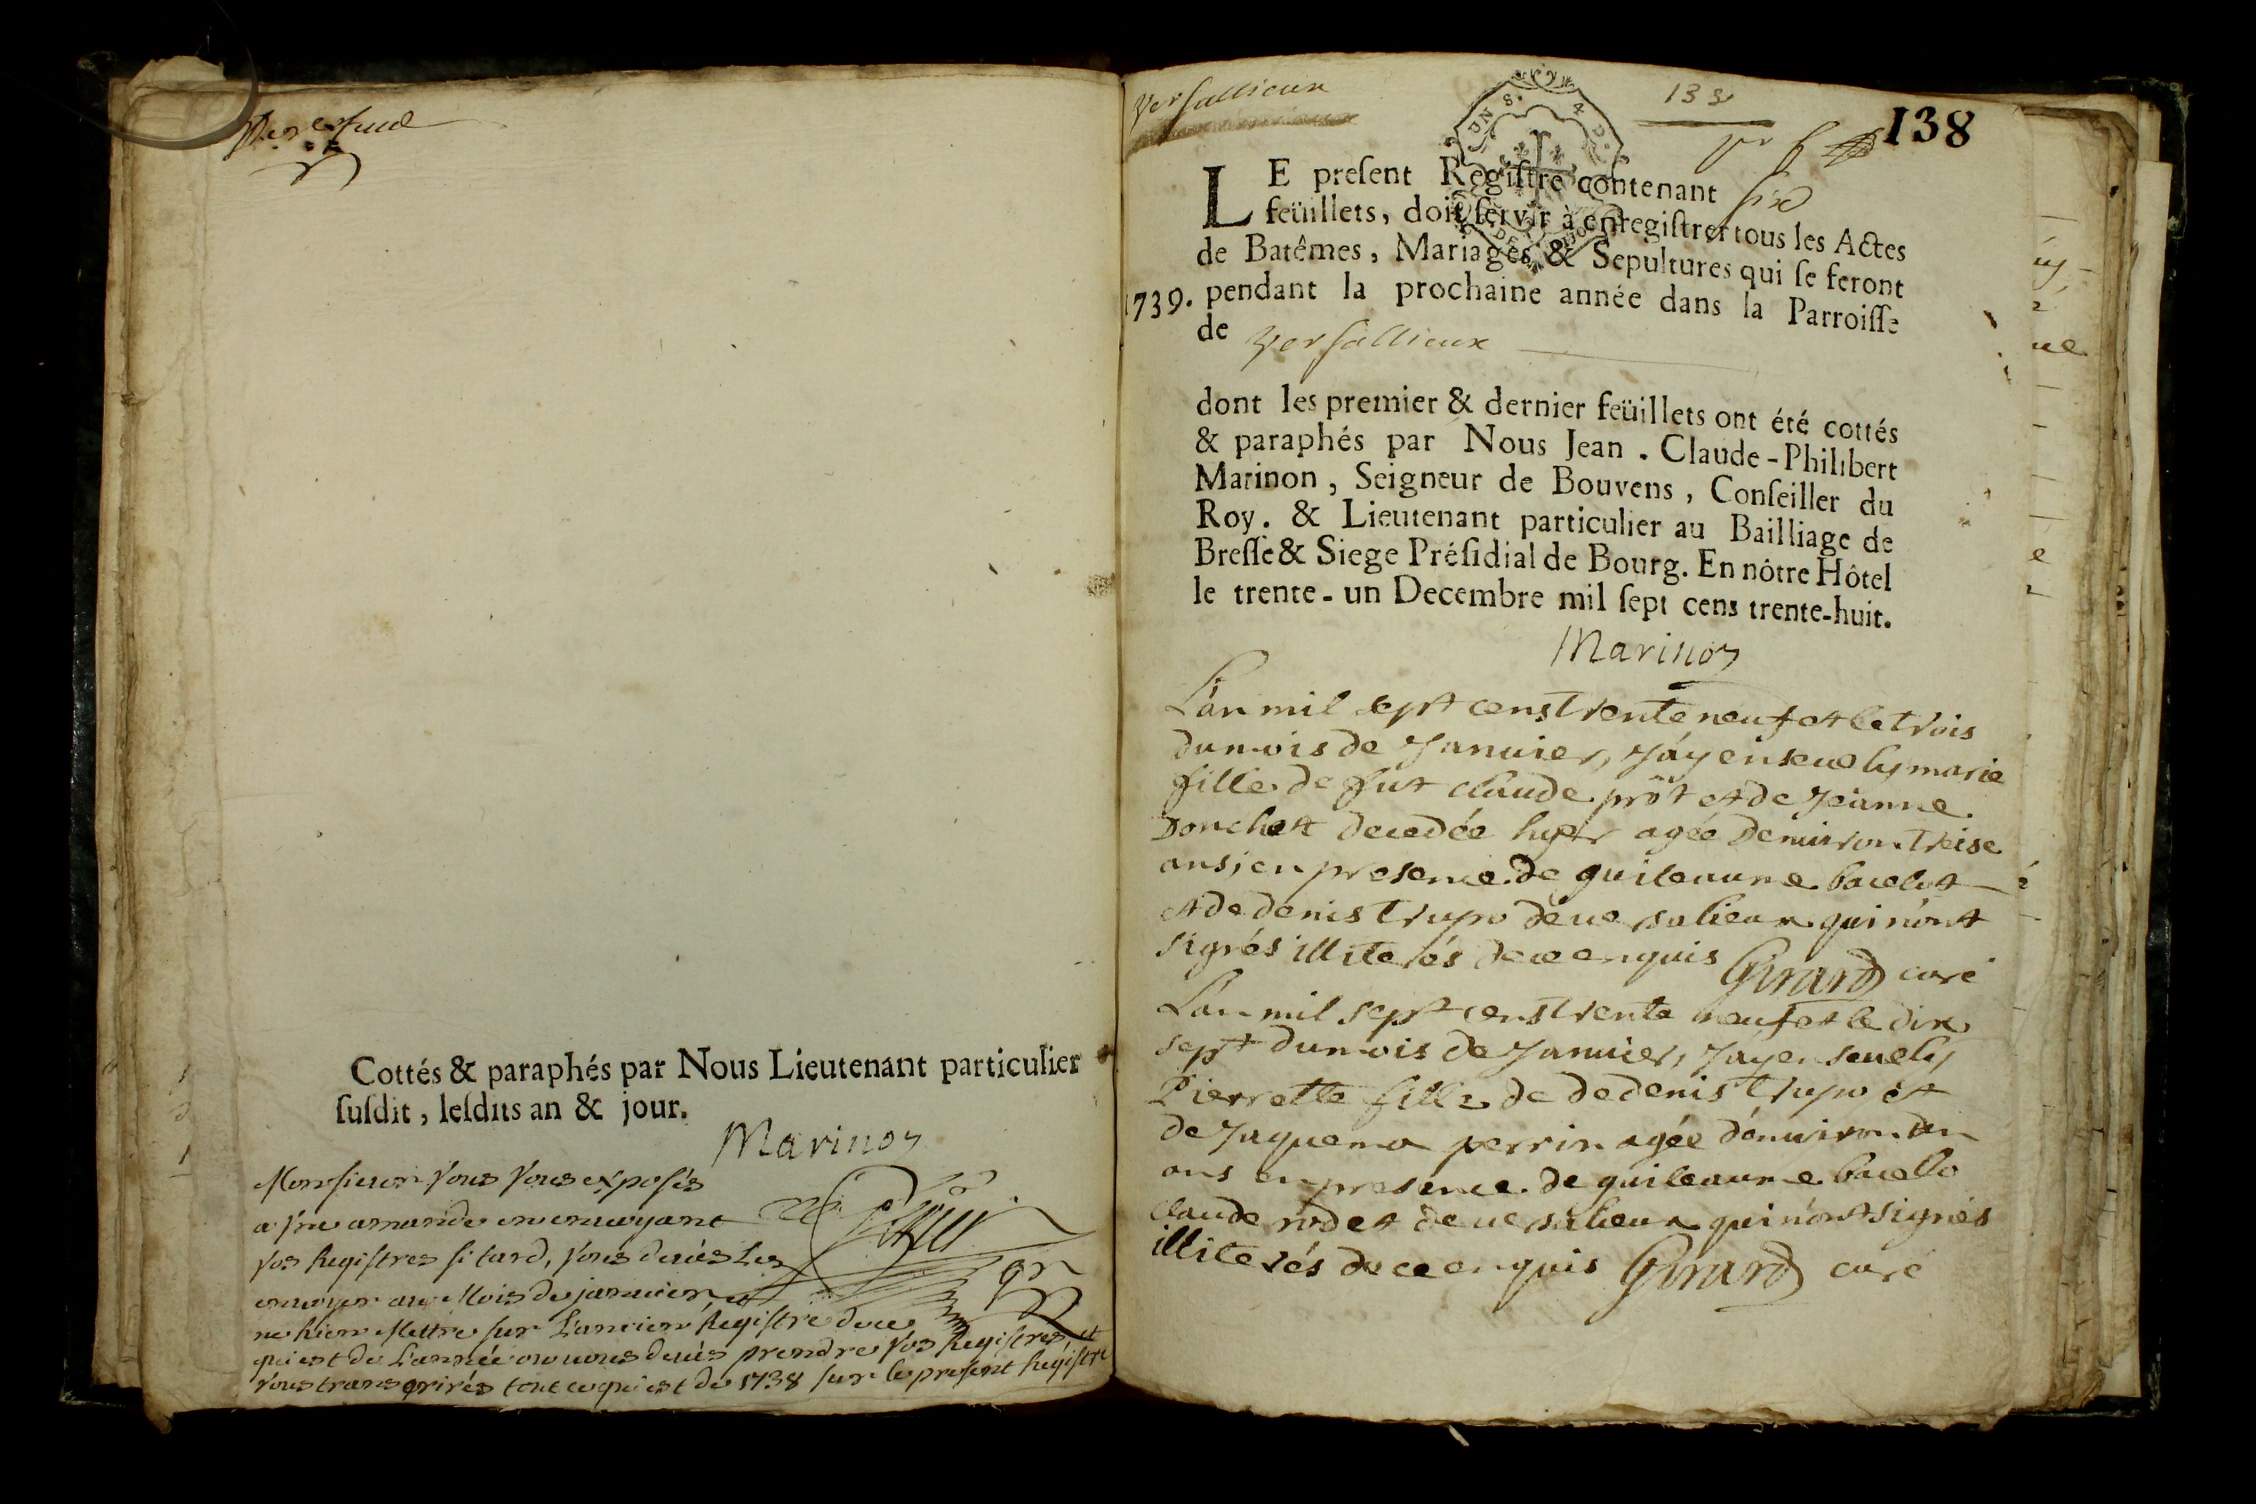 Cottés & paraphés par Nous Lieutenant particulier
ſuſdit, leſdits an & jour.
Marinon
Monsieur vous vous exposés
a vne amande en envoyant
vos Registres si tard, vous devés les
envoyer au Mois de janvier et
ne Rien Mettre sur L'ancien Registre de ce
qui est de L'année ou vous devés prendre vos Registres, et
vous transcrirés tout ce qui est de 1738 sur le present Registre
Versallieux
133
138
LE preſent Regiſtre contenant six
feüillets, doit ſervir à enregiſtrer tous les Actes
de Batêmes, Mariages & Sepultures qui ſe feront
1739. pendant la prochaine année dans la Parroiſſe
de Versallieux
dont les premier & dernier feüillets ont été cottés
& paraphés par Nous Jean . Claude-Philibert
Marinon, Seigneur de Bouvens, Conſeiller du
Roy. & Lieutenant particulier au Bailliage de
Breſſe & Siege Préſidial de Bourg. En nôtre Hôtel
le trente-un Decembre mil ſept cens trente-huit.
Marinon
L'an mil sept cens trente neuf et le trois
du mois de Januier, J'áy enseuely marie
fille de fut claude prôt et de Jeanne
Donchett decedée hyer agée denuiron treise
ans, en presence de guileaume bacelot
et de denis trupo de uersalieux qui n'ont
signés illiterés de ce enquis Girard curé
L'an mil sept cens trente neuf et le dix
sept du mois de Januier, J'áy enseuely
Pierrette fille de de denis trupo et
de Jaquema perrin agée d'enuiron
ans en presence de guileaume bacello
claude rodet de uersalieux qui n'ont signés
illiterés de ce enquis Girard curé